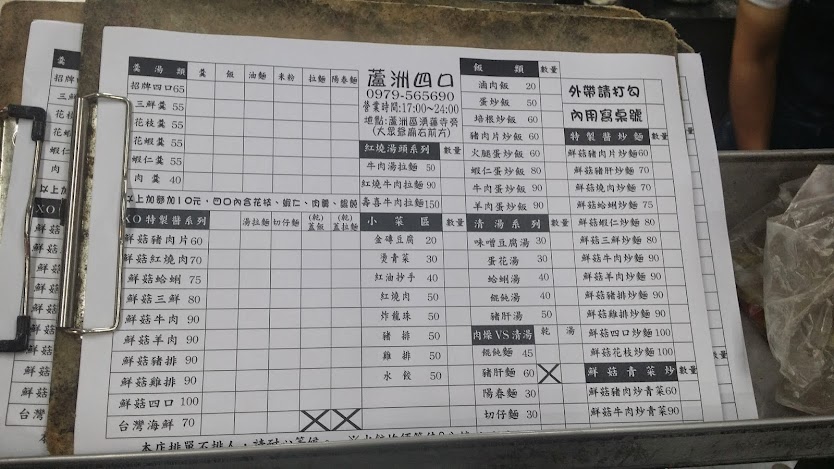 羹湯類 羹 飯 油麵 米粉 拉麵 陽春麵
招牌四口65
三鮮羹 55
花枝羹 55
花蝦羹 55
蝦仁羹 55
肉羹 40
XO特製醬系列 湯拉麵 切仔麵 (乾)蓋飯 (乾)蓋拉麵
鮮菇豬肉片60
鮮菇紅燒肉70
鮮菇蛤蜊 75
鮮菇三鮮 80
鮮菇牛肉 90
鮮菇羊肉 90
鮮菇豬排 90
鮮菇雞排 90
鮮菇四口 100
台灣海鮮 70
蘆洲四口
0979-565690
營業時間:17:00~24:00
地點:蘆洲區湧蓮寺旁
(大眾爺廟右前方)
紅燒湯頭系列 數量
牛肉湯拉麵 50
紅燒牛肉拉麵90
壽喜牛肉拉麵150
小菜區 數量
金磚豆腐 20
燙青菜 30
紅油抄手 40
紅燒肉 50
炸龍珠 50
豬排 50
雞排 50
水餃 50
飯類 數量
滷肉飯 20
蛋炒飯 50
培根炒飯 60
豬肉片炒飯 60
火腿蛋炒飯 60
蝦仁蛋炒飯 80
牛肉蛋炒飯 90
羊肉蛋炒飯 90
清湯系列 數量
味噌豆腐湯 30
蛋花湯 30
蛤蜊湯 40
餛飩湯 40
豬肝湯 50
肉燥VS清湯 乾 湯
餛飩麵 45
豬肝麵 60
陽春麵 30
切仔麵 30
外帶請打勾
內用寫桌號
特製醬炒麵 數量
鮮菇豬肉片炒麵60
鮮菇豬肝炒麵 70
鮮菇燒肉炒麵 70
鮮菇蛤蜊炒麵 75
鮮菇蝦仁炒麵 80
鮮菇三鮮炒麵 80
鮮菇牛肉炒麵 90
鮮菇羊肉炒麵 90
鮮菇豬排炒麵 90
鮮菇雞排炒麵 90
鮮菇四口炒麵 100
鮮菇花枝炒麵 100
鮮菇青菜炒 數量
鮮菇豬肉炒青菜60
鮮菇牛肉炒青菜90